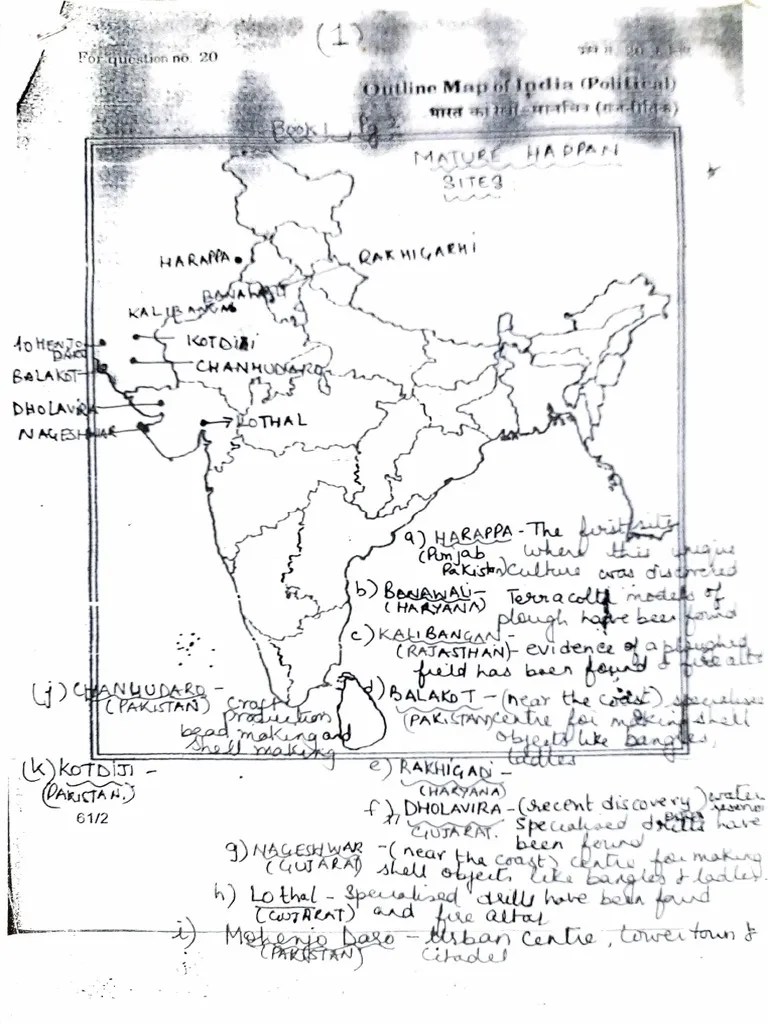 (1)
For question no. 20
Outline Map of India (Political)
भारत का रेखा-मानचित्र (राजनीतिक)
Book 1, Pg 2
MATURE HADPAN
SITES
HARAPPA
RAKHIGARHI
BANAWALI
KALIBANGAN
KOTDIJI
MOHENJO
DARO
CHANHUDARO
BALAKOT
DHOLAVIRA
LOTHAL
NAGESHWAR
a) HARAPPA - The first site
(Punjab where this unique
Pakistan) culture was discovered
b) BANAWALI - Terracotta models of
(HARYANA) plough have been found
c) KALIBANGAN -
(RAJASTHAN) - evidence of a ploughed
field has been found & fire alta
d) BALAKOT - (near the coast) specialised
(PAKISTAN) centre for making shell
objects like bangles,
ladles
(j) CHANHUDARO - craft
(PAKISTAN) production
bead making and
shell making
(k) KOTDIJI -
(PAKISTAN.)
61/2
e) RAKHIGADI -
(HARYANA)
f) DHOLAVIRA - (recent discovery) water
GUJARAT. Specialised drills have
been found
g) NAGESHWAR - (near the coast) centre for making
(GUJARAT) shell objects like bangles & ladles.
h) Lothal - Specialised drills have been found
(GUJARAT) and fire altar
i) Mohenjo Daro - Urban Centre, lower town &
(PAKISTAN) Citadel